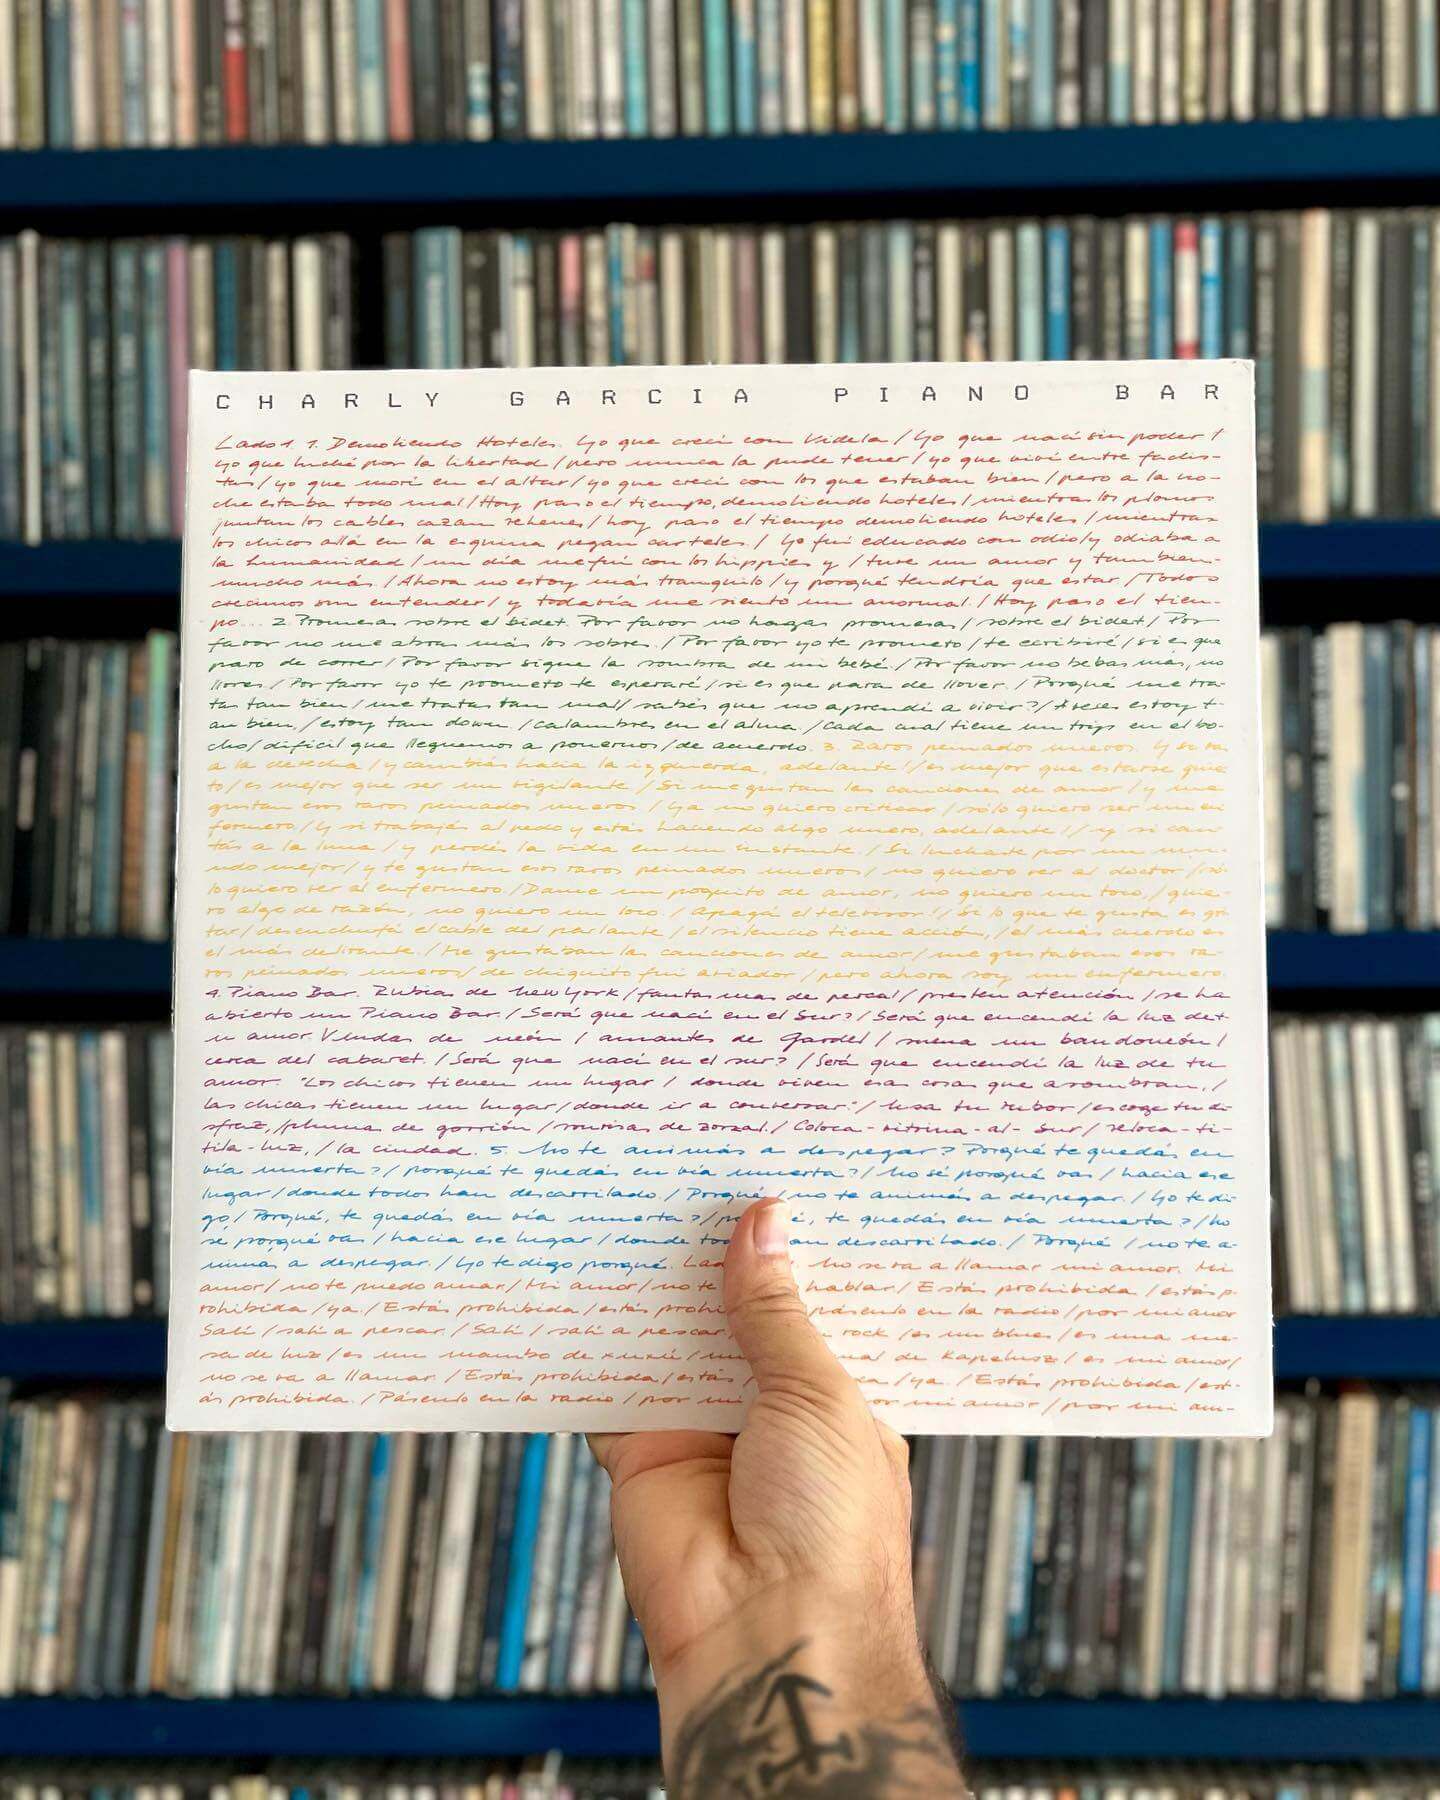 CHARLY GARCIA PIANO BAR
Lado 1. 1. Demoliendo Hoteles. Yo que crecí con Videla / Yo que nací sin poder /
yo que luché por la libertad / pero nunca la pude tener / yo que viví entre fachis-
tas / yo que morí en el altar / yo que crecí con los que estaban bien / pero a la no-
che estaba todo mal / Hoy paso el tiempo, demoliendo hoteles / mientras los plomos
juntan los cables cazan rehenes / hoy paso el tiempo demoliendo hoteles / mientras
los chicos allá en la esquina pegan carteles. / Yo fui educado con odio / y odiaba a
la humanidad / un día me fui con los hippies y / tuve un amor y tambien-
mucho más. / Ahora no estoy más tranquilo / y porqué tendría que estar / Todos
crecimos sin entender / y todavía me siento un anormal. / Hoy paso el tiem-
po... 2. Promesas sobre el bidet. Por favor no hagas promesas / sobre el bidet / Por
favor no me abras más los sobres. / Por favor yo te prometo / te escribiré / si es que
paro de correr / Por favor sigue la sombra de mi bebé. / Por favor no bebas más, no
llores / Por favor yo te prometo te esperaré / si es que para de llover. / Porqué me tra-
tas tan bien / me tratas tan mal / sabés que no aprendí a vivir? / Aveces estoy t-
an bien, / estoy tan down / calambres en el alma. / Cada cual tiene un trip en el bo-
cho / difícil que lleguemos a ponernos / de acuerdo. 3. Raros peinados nuevos. Y si va
a la derecha / y cambiás hacia la izquierda, adelante! / es mejor que estarse quie-
to / es mejor que ser un vigilante / Si me gustan las canciones de amor / y me
gustan esos raros peinados nuevos / Ya no quiero criticar / sólo quiero ser un en
fermero. / Y si trabajás al pedo y estás haciendo algo nuevo, adelante! / y si can
tás a la luna / y perdés la vida en un instante. / Si luchaste por un mun-
do mejor / y te gustan esos raros peinados nuevos / no quiero ver al doctor / só
lo quiero ver al enfermero. / Dame un poquito de amor, no quiero un toco, / quie-
ro algo de razón, no quiero un loco. / Apagá el televisor! / Si lo que te gusta es gri
tar / desenchufá el cable del parlante / el silencio tiene acción, / el más cuerdo es
el más delirante. / Me gustaban las canciones de amor / me gustaban esos ra-
ros peinados nuevos / de chiquito fui aviador / pero ahora soy un enfermero.
4. Piano Bar. Rubias de New York / fantasmas de percal / presten atención / se ha
abierto un Piano Bar. / Será que nací en el Sur? / Será que encendí la luz de t
u amor. Viudas de neón / amantes de Gardel / suena un bandoneón /
cerca del cabaret. / Será que nací en el sur? / Será que encendí la luz de tu
amor. "Los chicos tienen un lugar / donde viven esas cosas que asombran, /
las chicas tienen un lugar / donde ir a conversar." / Usa tu rubor / escoge tu di-
sfraz, / pluma de gorrión / sonrisas de zorzal. / Coloca-vitrina-al-Sur / reloca-ti-
tila-luz, / la ciudad. 5. No te animás a despegar? Porqué te quedás en
vía muerta? / porqué te quedás en vía muerta? / No sé porqué vas / hacia ese
lugar / donde todos han descarrilado. / Porqué / no te animás a despegar. / Yo te di-
go / Porqué, te quedás en vía muerta? / po é, te quedás en vía muerta? / No
sé porqué vas / hacia ese lugar / donde tod an descarrilado. / Porqué / no te a-
nimás a despegar. / Yo te digo porqué. Lad No se va a llamar mi amor. Mi
amor / no te puedo amar / Mi amor / no te hablar / Estás prohibida / estás p-
rohibida / ya. / Estás prohibida / estás prohi pásenlo en la radio / por mi amor
Salí / salí a pescar. / Salí / salí a pescar rock / es un blues / es una me-
sa de luz / es un mambo de xuxú / un nal de Kapelusz / es mi amor /
no se va a llamar. / Estás prohibida / estás da / ya. / Estás prohibida / est-
ás prohibida. / Pásenlo en la radio / por mi or mi amor / por mi am-